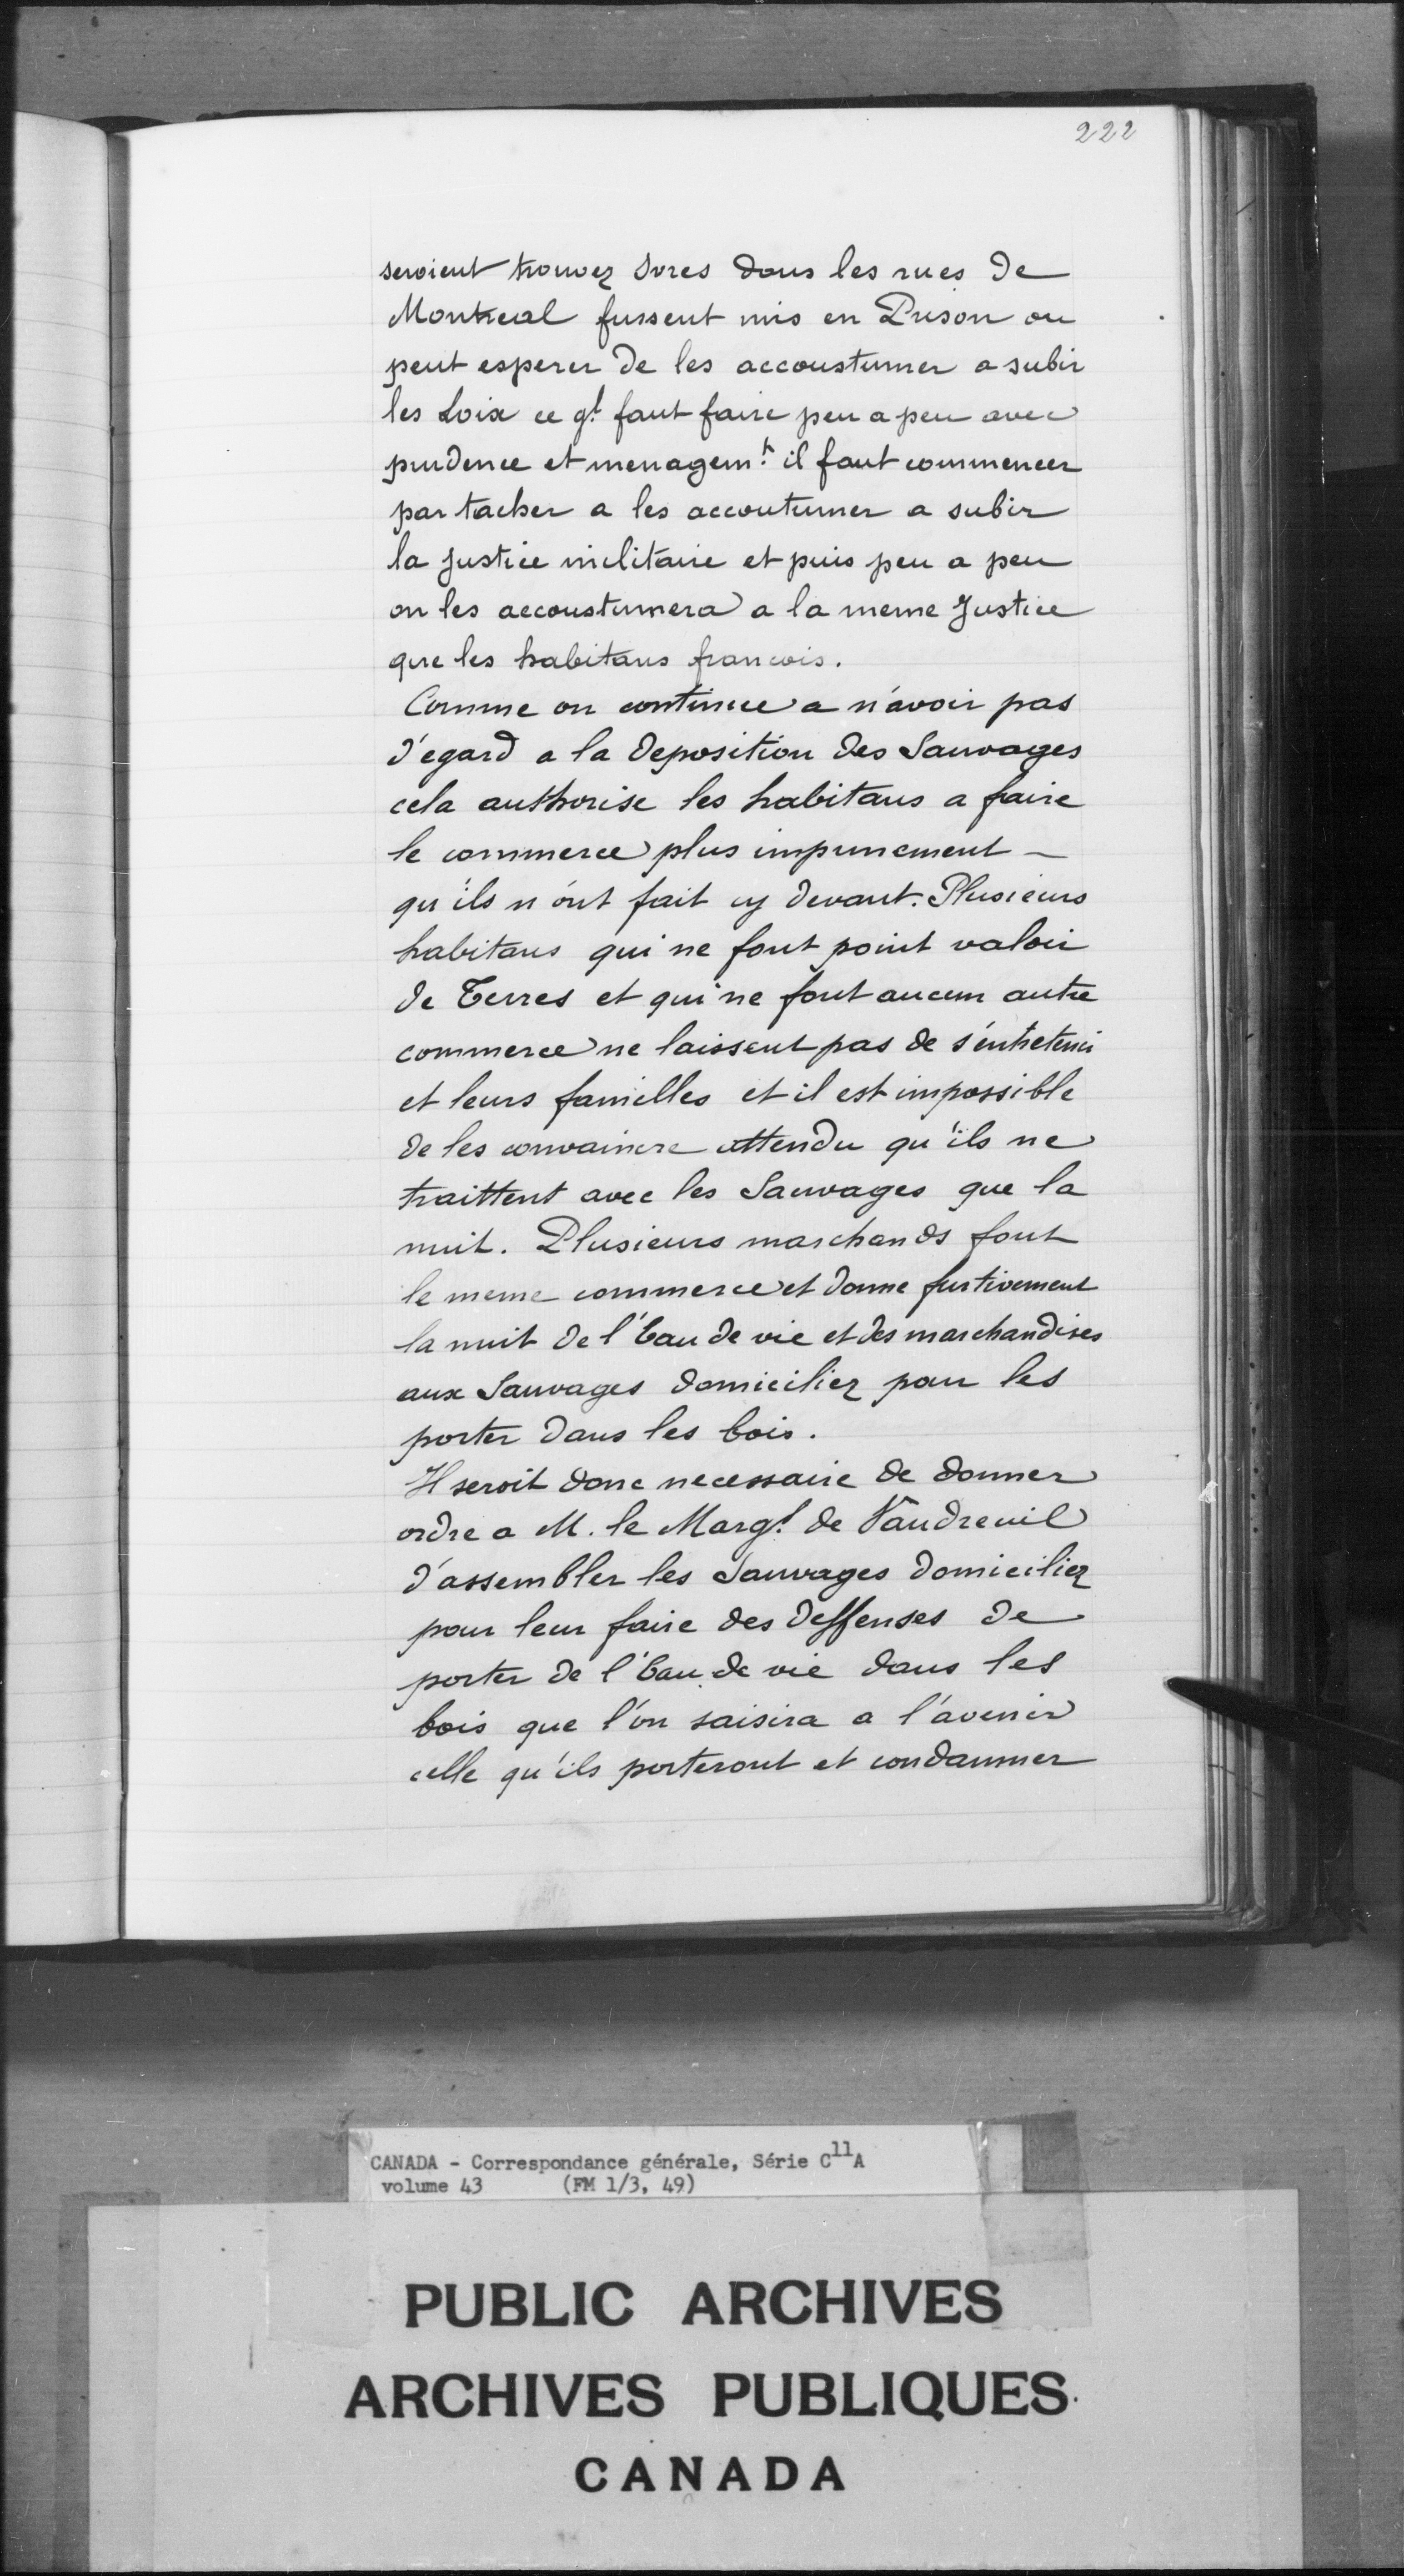 222
seroient trouvez ivres dans les rues de
Montreal fussent mis en Prison on
peut esperer de les accoustumer a subir
les Loix ce q.l faut faire peu a peu avec
prudence et menagem.t il faut commencer
par tacher a les accoutumer a subir
la justice militaire et puis peu a peu
on les accoustumera a la meme Justice
que les habitans francois.
Comme on continue a n'avoir pas
d'egard a la deposition des Sauvages
cela authorise les habitans a faire
le commerce plus impunement —
qu'ils n'ont fait cy devant. Plusieurs
habitans qui ne font point valoir
de Terres et qui ne font aucun autre
commerce ne laissent pas de s'entretenir
et leurs familles et il est impossible
de les convaincre attendu qu'ils ne
traittent avec les Sauvages que la
nuit. Plusieurs marchands font
le meme commerce et donne furtivement
la nuit de l'Eau de vie et des marchandises
aux Sauvages domiciliez pour les
porter dans les bois.
Il seroit donc necessaire de donner
ordre a M. le Marq.s de Vaudreuil
d'assembler les Sauvages domiciliez
pour leur faire des deffenses de
porter de l'Eau de vie dans les
bois que l'on saisira a l'avenir
celle qu'ils porteront et condamner
CANADA - Correspondance générale, Série C11A
volume 43 (FM 1/3, 49)
PUBLIC ARCHIVES
ARCHIVES PUBLIQUES
CANADA